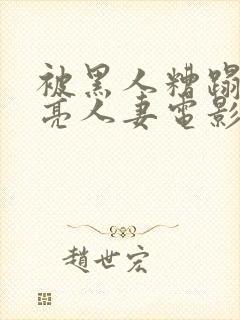 被黑人糟蹋
亮人妻电影
趙世宏